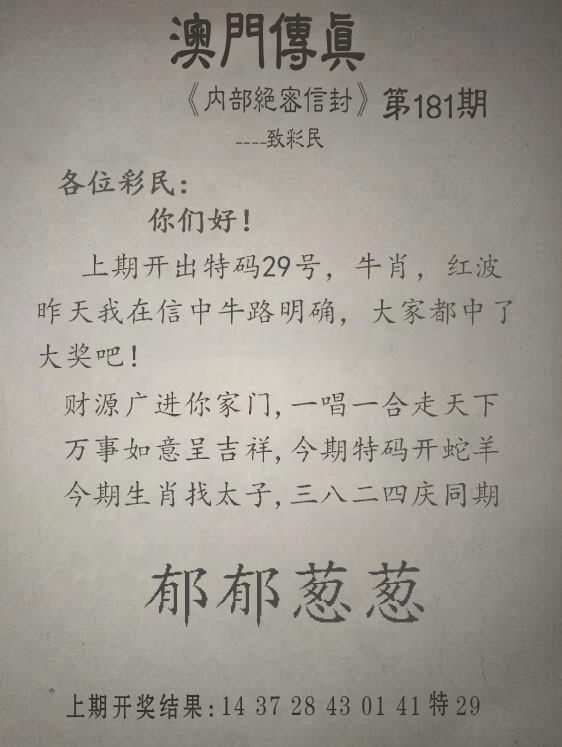 澳門傳真
《内部絕密信封》第181期
----致彩民
各位彩民：
你们好！
上期开出特码29号，牛肖，红波
昨天我在信中牛路明确，大家都中了
大奖吧！
财源广进你家门,一唱一合走天下
万事如意呈吉祥,今期特码开蛇羊
今期生肖找太子,三八二四庆同期
郁郁葱葱
上期开奖结果:14 37 28 43 01 41 特 29